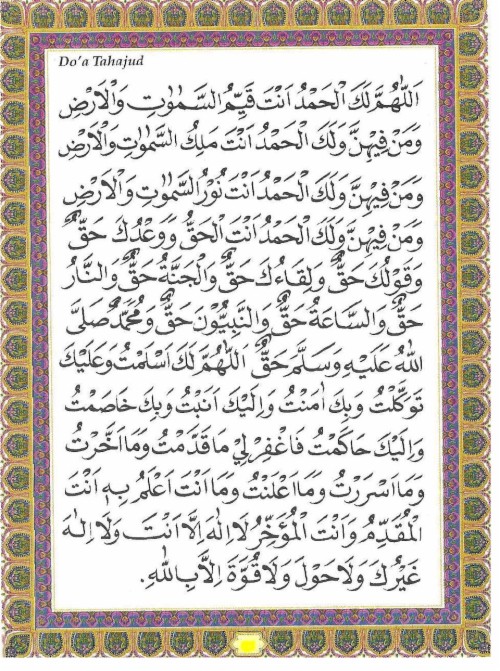 Do'a Tahajud
اَللّٰهُمَّ لَكَ الْحَمْدُ اَنْتَ قَيِّمُ السَّمٰوٰتِ وَالْاَرْضِ
وَمَنْ فِيْهِنَّ وَلَكَ الْحَمْدُ اَنْتَ مَلِكُ السَّمٰوٰتِ وَالْاَرْضِ
وَمَنْ فِيْهِنَّ وَلَكَ الْحَمْدُ اَنْتَ نُوْرُ السَّمٰوٰتِ وَالْاَرْضِ
وَمَنْ فِيْهِنَّ وَلَكَ الْحَمْدُ اَنْتَ الْحَقُّ وَوَعْدُكَ حَقٌّ
وَقَوْلُكَ حَقٌّ وَلِقَاءُكَ حَقٌّ وَالْجَنَّةُ حَقٌّ وَالنَّارُ
حَقٌّ وَالسَّاعَةُ حَقٌّ وَالنَّبِيُّوْنَ حَقٌّ وَمُحَمَّدٌ صَلَّى
اللهُ عَلَيْهِ وَسَلَّمَ حَقٌّ اَللّٰهُمَّ لَكَ اَسْلَمْتُ وَعَلَيْكَ
تَوَكَّلْتُ وَبِكَ اٰمَنْتُ وَاِلَيْكَ اَنَبْتُ وَبِكَ خَاصَمْتُ
وَاِلَيْكَ حَاكَمْتُ فَاغْفِرْ لِيْ مَا قَدَّمْتُ وَمَا اَخَّرْتُ
وَمَا اَسْرَرْتُ وَمَا اَعْلَنْتُ وَمَا اَنْتَ اَعْلَمُ بِهٖ اَنْتَ
الْمُقَدِّمُ وَاَنْتَ الْمُؤَخِّرُ لَا اِلٰهَ اِلَّا اَنْتَ وَلَا اِلٰهَ
غَيْرُكَ وَلَا حَوْلَ وَلَا قُوَّةَ اِلَّا بِاللهِ.